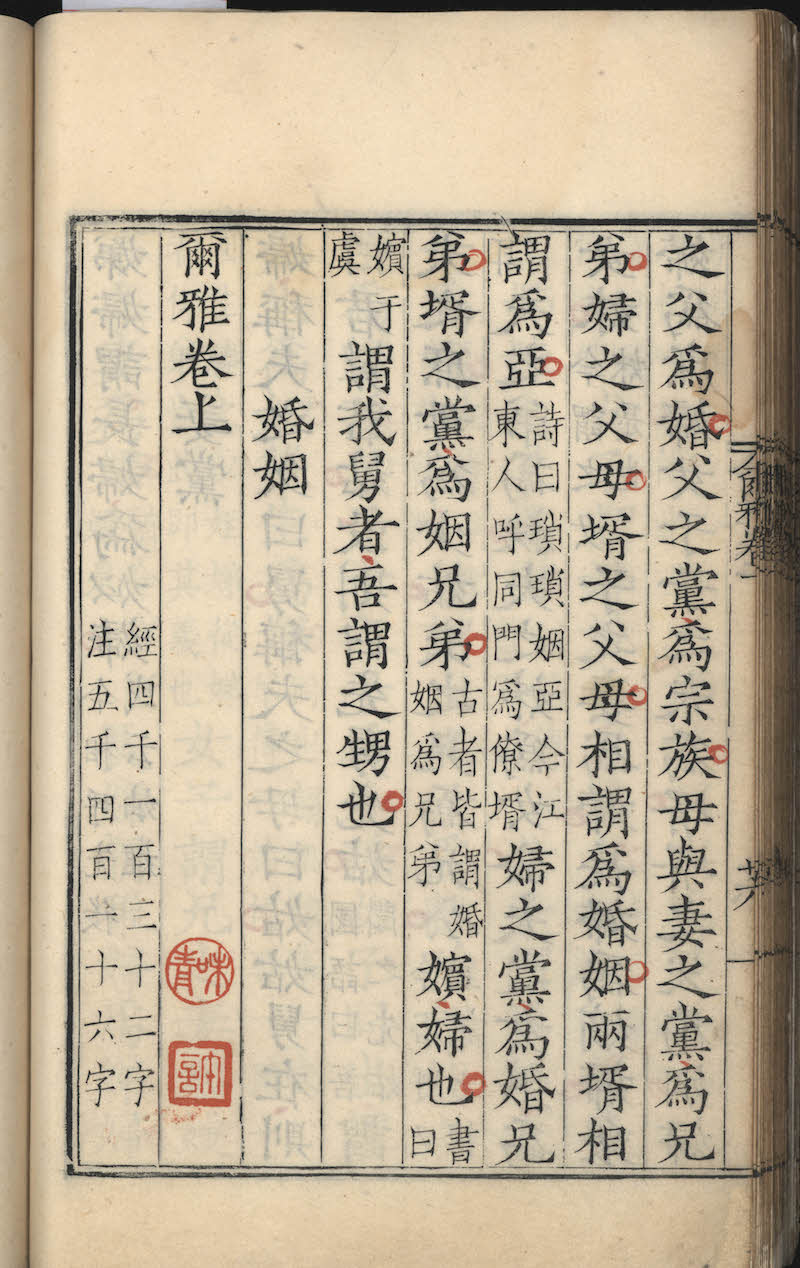 之父爲婚父之黨爲宗族母與妻之黨爲兄
弟婦之父母壻之父母相謂爲婚姻兩壻相
謂爲亞
詩曰瑣瑣姻亞今江
東人呼同門爲僚壻
婦之黨爲婚兄
弟壻之黨爲姻兄弟
古者皆謂婚
姻爲兄弟
嬪婦也
書
曰
嬪于
虞
謂我舅者吾謂之甥也
婚姻
爾雅卷上
經四千一百三十二字
注五千四百一十六字
青